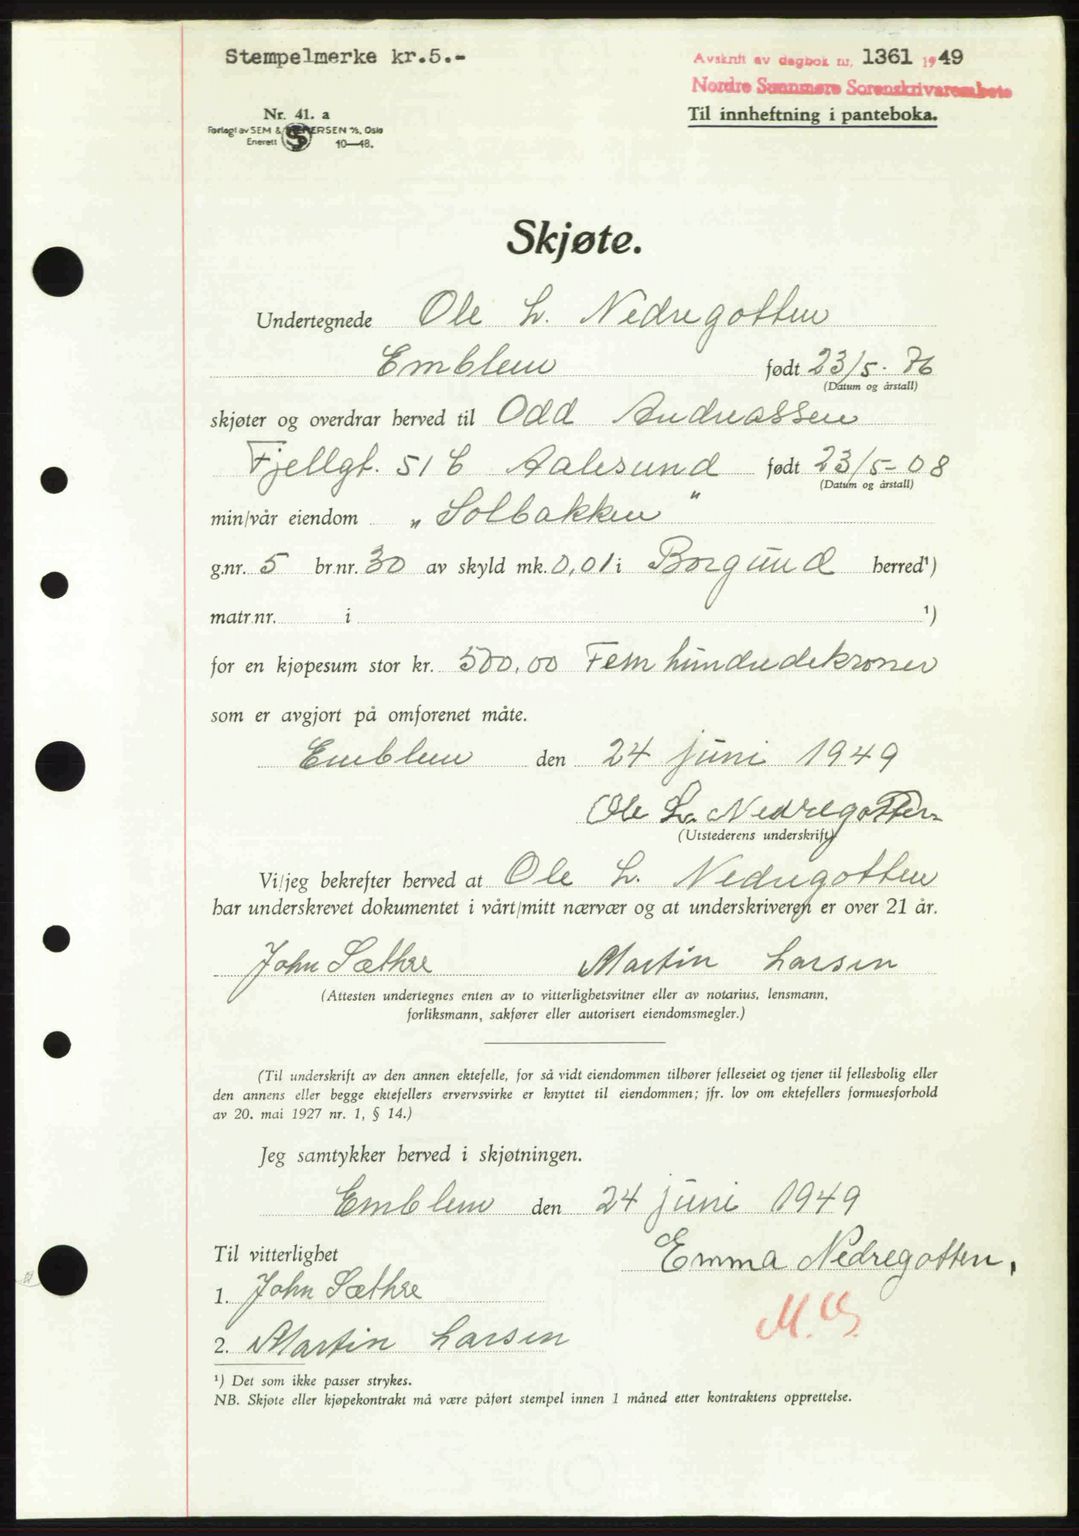 Stempelmerke kr.5.-
Avskrift av dagbok nr. 1361 1949
Nordre Sunnmøre Sorenskrivarembete
Nr. 41. a
Til innheftning i panteboka.
Forlagt av SEM & STENERSEN A/S, Oslo
Enerett SS 10—48.
Skjøte.
Undertegnede Ole L. Nedregotten
Emblem født 23/5-76
(Datum og årstall)
skjøter og overdrar herved til Odd Andreassen
Fjellgt. 51 C Aalesund født 23/5-08
(Datum og årstall)
min/vår eiendom „Solbakken"
g.nr. 5 br.nr. 30 av skyld mk. 0,01 i Borgund herred¹)
matr.nr. i ¹)
for en kjøpesum stor kr. 500,00 Fem hundredekroner
som er avgjort på omforenet måte.
Emblem den 24 juni 1949
Ole L. Nedregotten
(Utstederens underskrift)
Vi/jeg bekrefter herved at Ole L. Nedregotten
har underskrevet dokumentet i vårt/mitt nærvær og at underskriveren er over 21 år.
John Sæthre Martin Larsen
(Attesten undertegnes enten av to vitterlighetsvitner eller av notarius, lensmann,
forliksmann, sakfører eller autorisert eiendomsmegler.)
(Til underskrift av den annen ektefelle, for så vidt eiendommen tilhører felleseiet og tjener til fellesbolig eller
den annens eller begge ektefellers ervervsvirke er knyttet til eiendommen; jfr. lov om ektefellers formuesforhold
av 20. mai 1927 nr. 1, § 14.)
Jeg samtykker herved i skjøtningen.
Emblem den 24 juni 1949
Til vitterlighet
Emma Nedregotten.
1. John Sæthre
2. Martin Larsen
¹) Det som ikke passer strykes.
NB. Skjøte eller kjøpekontrakt må være påført stempel innen 1 måned etter kontraktens opprettelse.